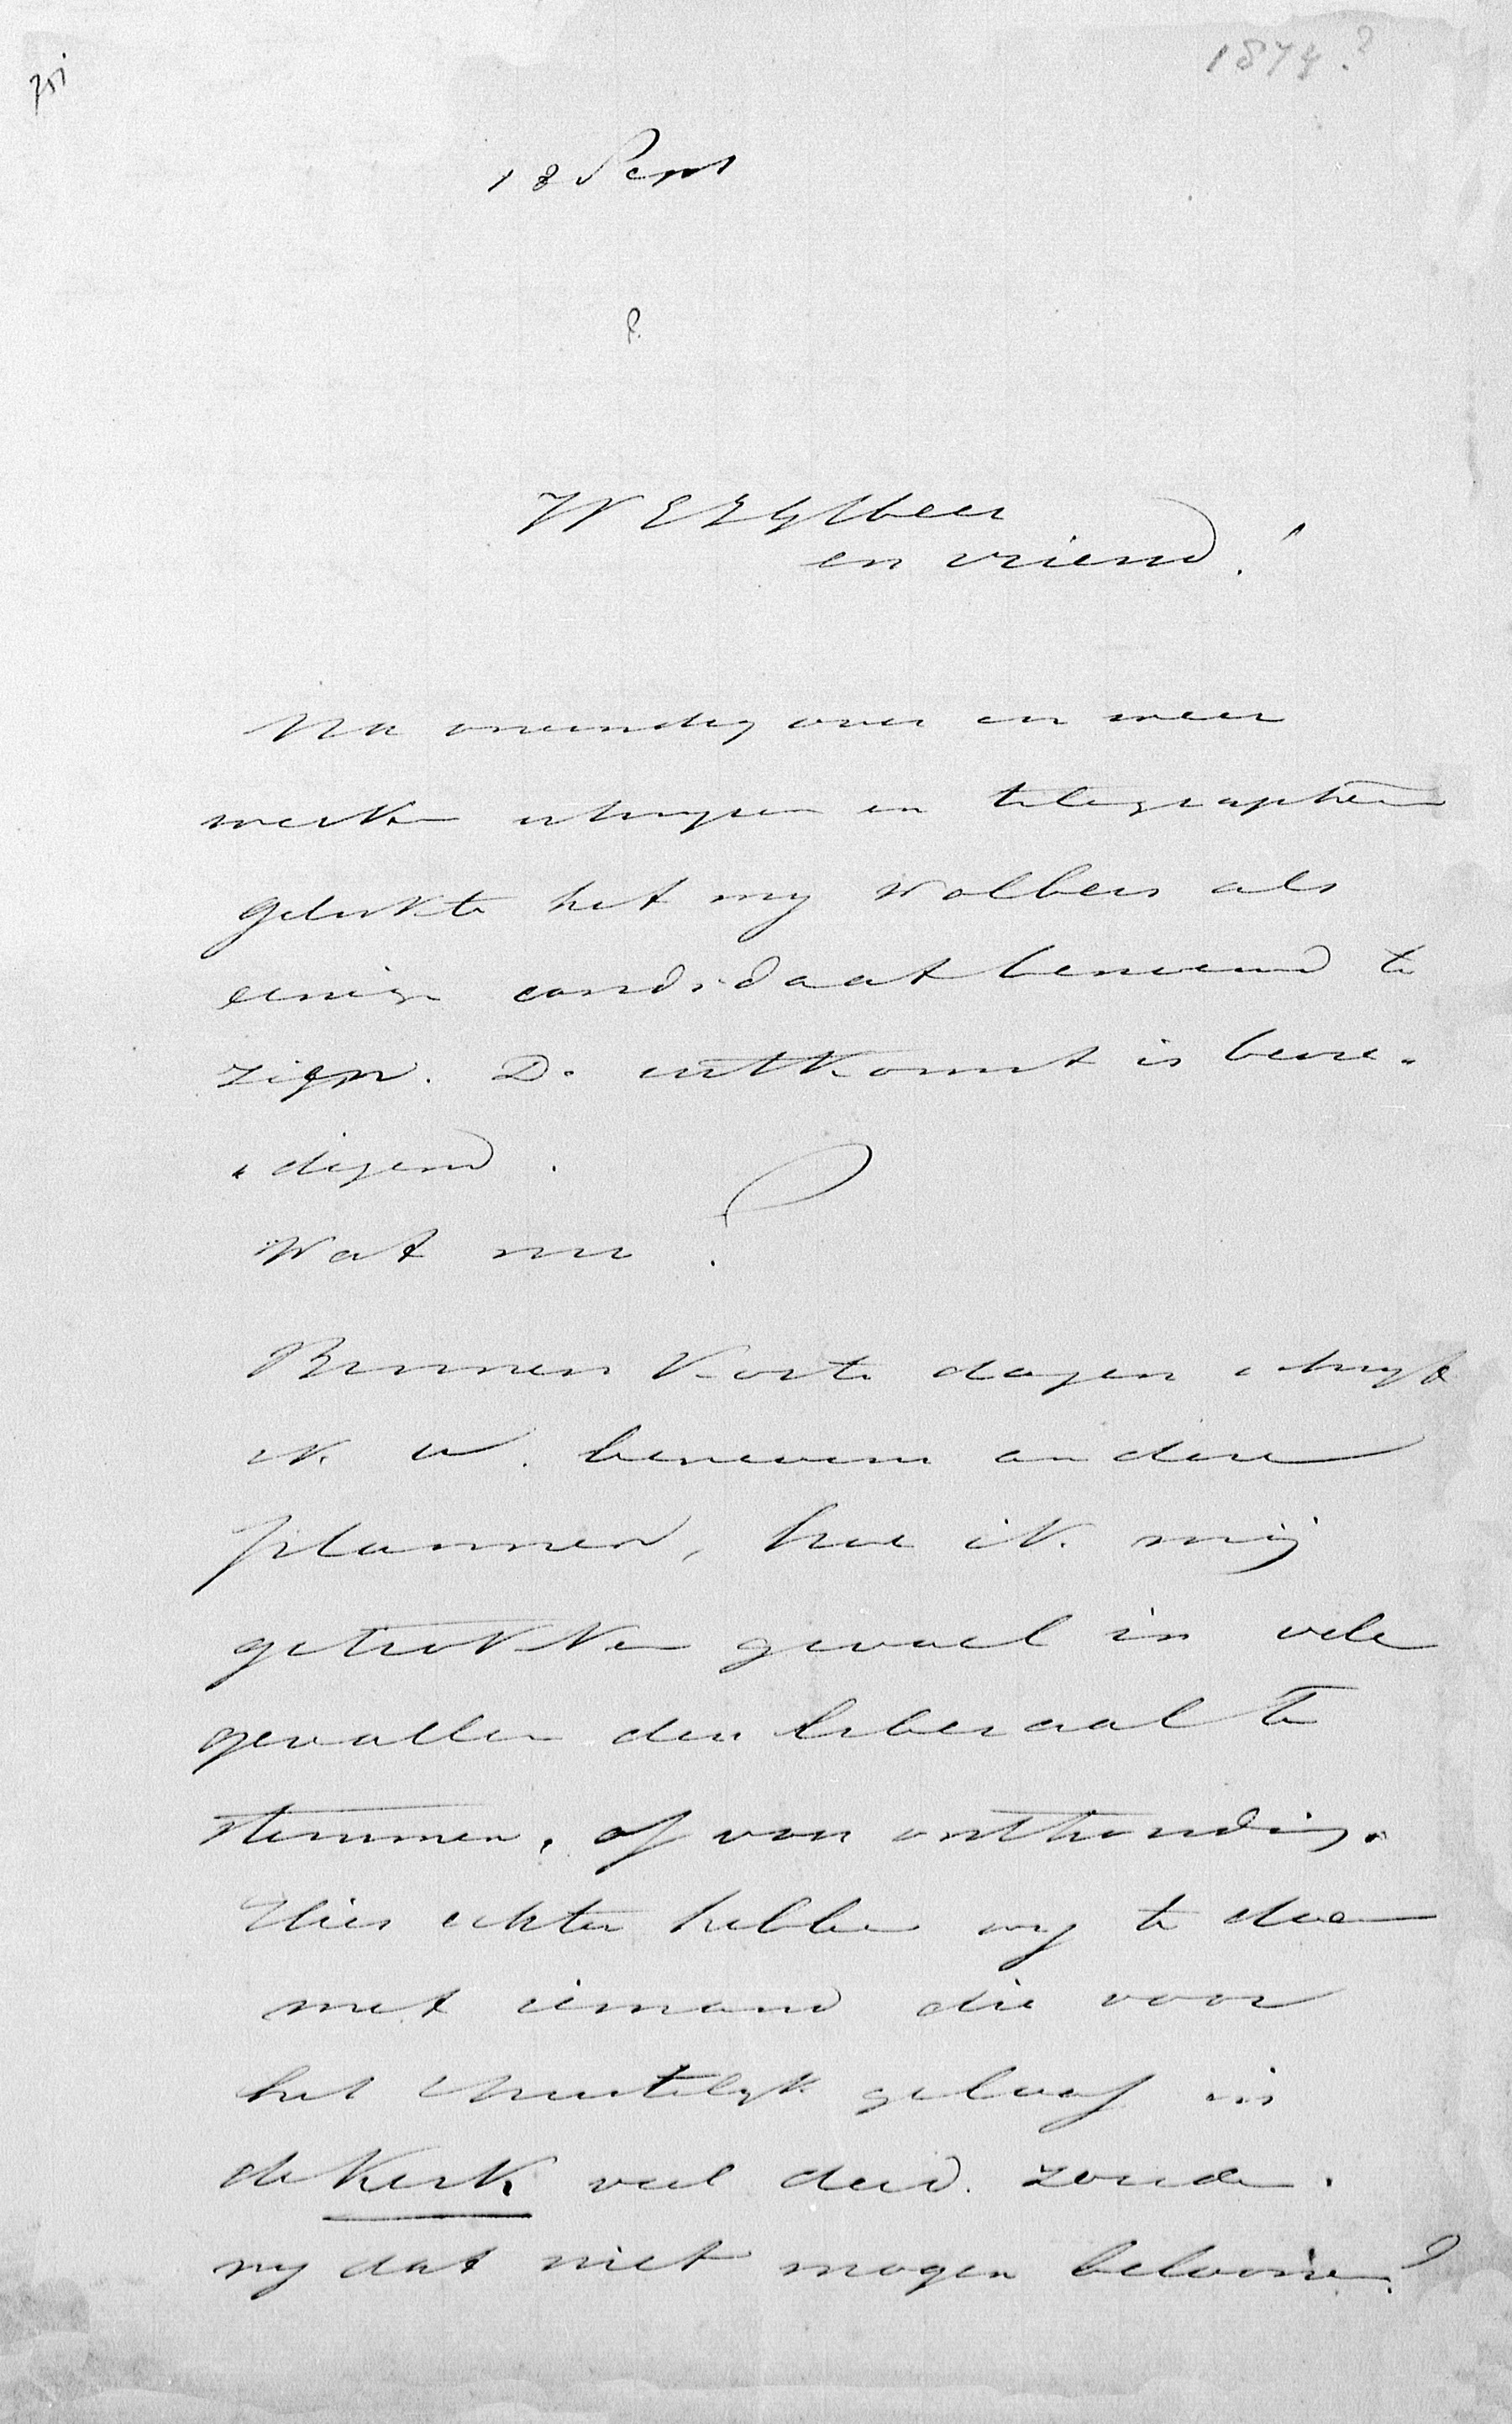 1874?
18 Sept
?
WEZGHeer
en vriend!
Na oneindig over en weer
werken schrijven en telegrapheeren
gelukte het mij Wolbers als
eenige candidaat benoemd te
zien. De uitkomst is bevre-
digend.
Wat nu?
Binnen korte dagen schrijf
ik U. benevens andere
plannen, hoe ik mij
getrokken gevoel in vele
gevallen den liberaal te
stemmen, of van onthouding.
Hier echter hebben wij te doen
met iemand die voor
het Christelijk geloof in
de Kerk veel deed. zouden
wij dat niet mogen beloonen?